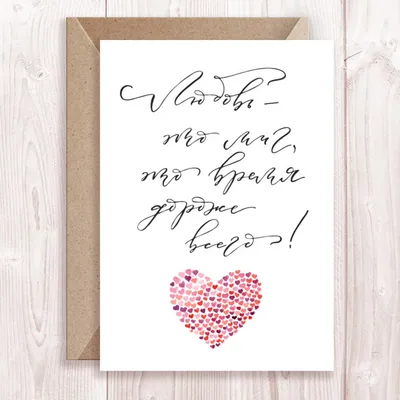 Любовь –
это миг,
это время
дороже
всего!